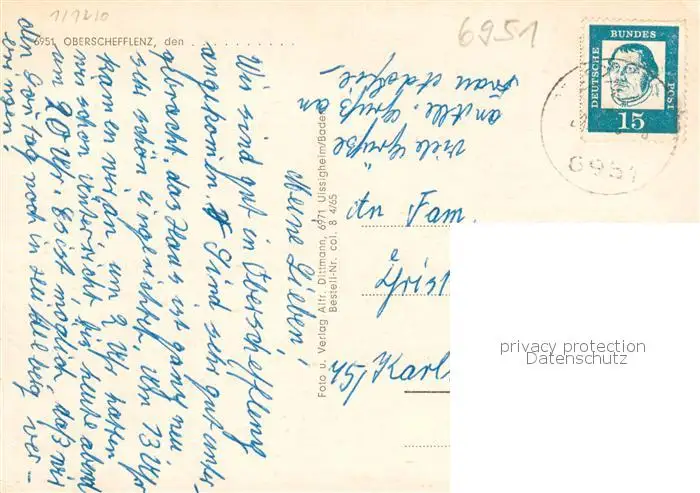 1/12/0
6951 OBERSCHEFFLENZ, den
6951
DEUTSCHE BUNDES POST
15
6951
Meine Lieben!
Wir sind gut in Oberschefflenz
angekommen. Sind sehr gut unter-
gebracht, das Haus ist ganz neu
sehr schön eingerichtet. Um 13 Uhr
kamen wir an, um 2 Uhr hatten
wir schon Unterricht bis heute abend
um 20 Uhr. Es ist möglich, daß wir
den Sonntag noch in Heidelberg ver-
bringen!
Viele Grüße
Gruß an
Frau
Foto u. Verlag Alfr. Dittmann, 6971 Uissigheim/Baden
Bestell-Nr. col. 8 4/65
An Fam.
Christ
75/Karl
privacy protection
Datenschutz